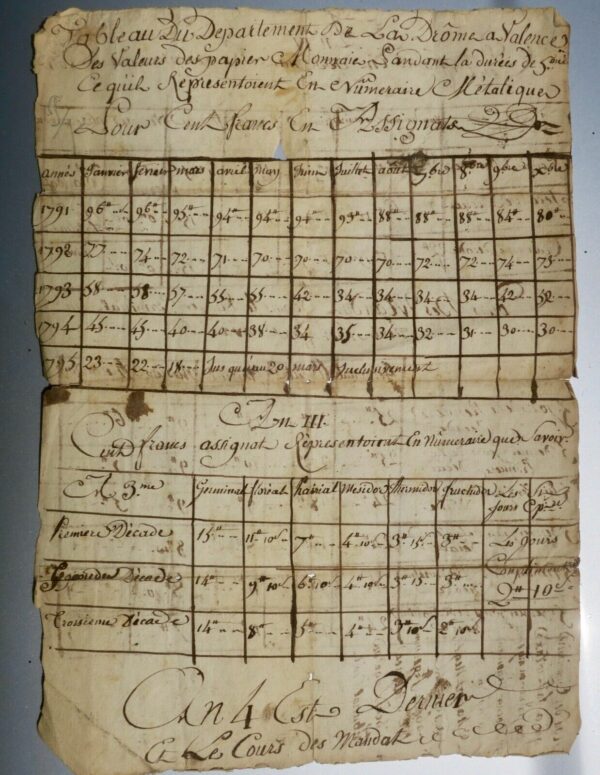 Tableau Du Departement De La Drôme a Valence
Des Valeurs des papier Monnaie Pandant la durées de
Ce quil Représentoient En Numeraire Métalique
Pour Cent francs En Assignats
années Janvier fevrier mars avril may Juin Juillet aout 7bre 8bre 9bre Xbre
1791 96" 96" 95" 94" 94" 94" 93" 88" 88" 88" 84" 80"
1792 77 74 72 71 70 70 70 70 72 72 74 75
1793 58 58 57 55 55 42 34 34 34 34 42 52
1794 45 45 40 40 38 34 35 34 32 31 30 30
1795 23 22 18 Jusqu'au 20 mars
An III
Cent francs assignat Représentoient En Numeraire que Savoir
A 3.me Germinal floréal Prairial Mesidor thermidor fructidor Les Jours
Premiere Décade 15" 11" 10s 7" 4" 10s 3" 15s 3" Les Jours
Décade 14" 9" 10s 6" 10s 4" 10s 3" 15s 3" 2" 10s
Troisieme Décade 14" 8" 5" 4" 3" 10s 2" 10s
An 4 Est Dernier
Et Le Cours des Mandat